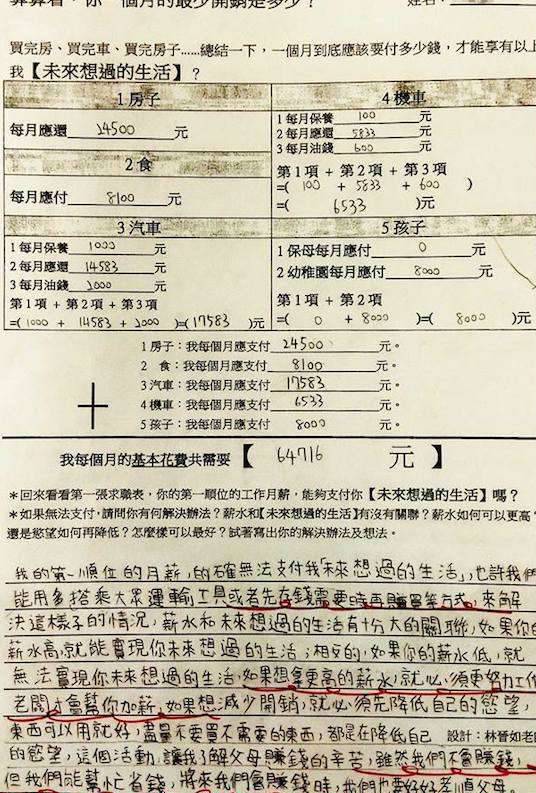 算算看，你一個月的最少開銷是多少？ 姓名：
買完房、買完車、買完房子......總結一下，一個月到底應該要付多少錢，才能享有以上
我【未來想過的生活】？
1房子
每月應還 24500 元
2食
每月應付 8100 元
3汽車
1 每月保養 1000 元
2 每月應還 14583 元
3 每月油錢 2000 元
第1項 + 第2項 + 第3項
=( 1000 + 14583 + 2000 )=( 17583 )元
4機車
1 每月保養 100 元
2 每月應還 5833 元
3 每月油錢 600 元
第1項 + 第2項 + 第3項
=( 100 + 5833 + 600 )
=( 6533 )元
5孩子
1 保母每月應付 0 元
2 幼稚園每月應付 8000 元
第1項 + 第2項
=( 0 + 8000 )=( 8000 )元
1 房子：我每個月應支付 24500 元。
2 食：我每個月應支付 8100 元。
3 汽車：我每個月應支付 17583 元。
4 機車：我每個月應支付 6533 元。
5 孩子：我每個月應支付 8000 元。
+
我每個月的基本花費共需要【 64716 元】
＊回來看看第一張求職表，你的第一順位的工作月薪，能夠支付你【未來想過的生活】嗎？
＊如果無法支付，請問你有何解決辦法？薪水和【未來想過的生活】有沒有關聯？薪水如何可以更高？
還是慾望如何再降低？怎麼樣可以最好？試著寫出你的解決辦法及想法。
我的第一順位的月薪，的確無法支付我「未來想過的生活」，也許我們
能用多搭乘大眾運輸工具或者先存錢需要時再購買等方式，來解
決這樣子的情況，薪水和未來想過的生活有十分大的關聯，如果你的
薪水高，就能實現你未來想過的生活；相反的，如果你的薪水低，就
無法實現你未來想過的生活，如果想拿更高的薪水，就必須更努力工作
老闆才會幫你加薪，如果想減少開銷，就必須先降低自己的慾望，
東西可以用就好，盡量不要買不需要的東西，都是在降低自己 設計：林晉如老
的慾望，這個活動，讓我了解父母賺錢的辛苦，雖然我們不會賺錢，
但我們能幫忙省錢，將來我們會賺錢時，我們也要好好孝順父母。